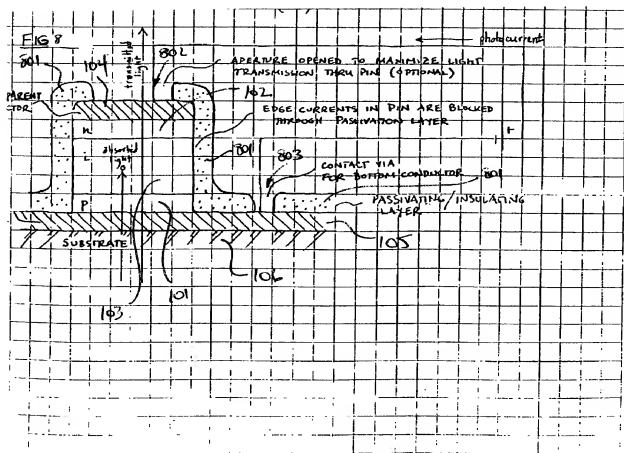 FIG 8
photocurrent
801
104
transmitted
light
802
APERTURE OPENED TO MAXIMIZE LIGHT
TRANSMISSION THRU PIN (OPTIONAL)
102
PARENT
CTOR
EDGE CURRENTS IN PIN ARE BLOCKED
THROUGH PASSIVATION LAYER
n
i
absorbed
light
801
803
CONTACT VIA
FOR BOTTOM CONDUCTOR
801
P
PASSIVATING/INSULATING
LAYER
SUBSTRATE
105
106
101
103